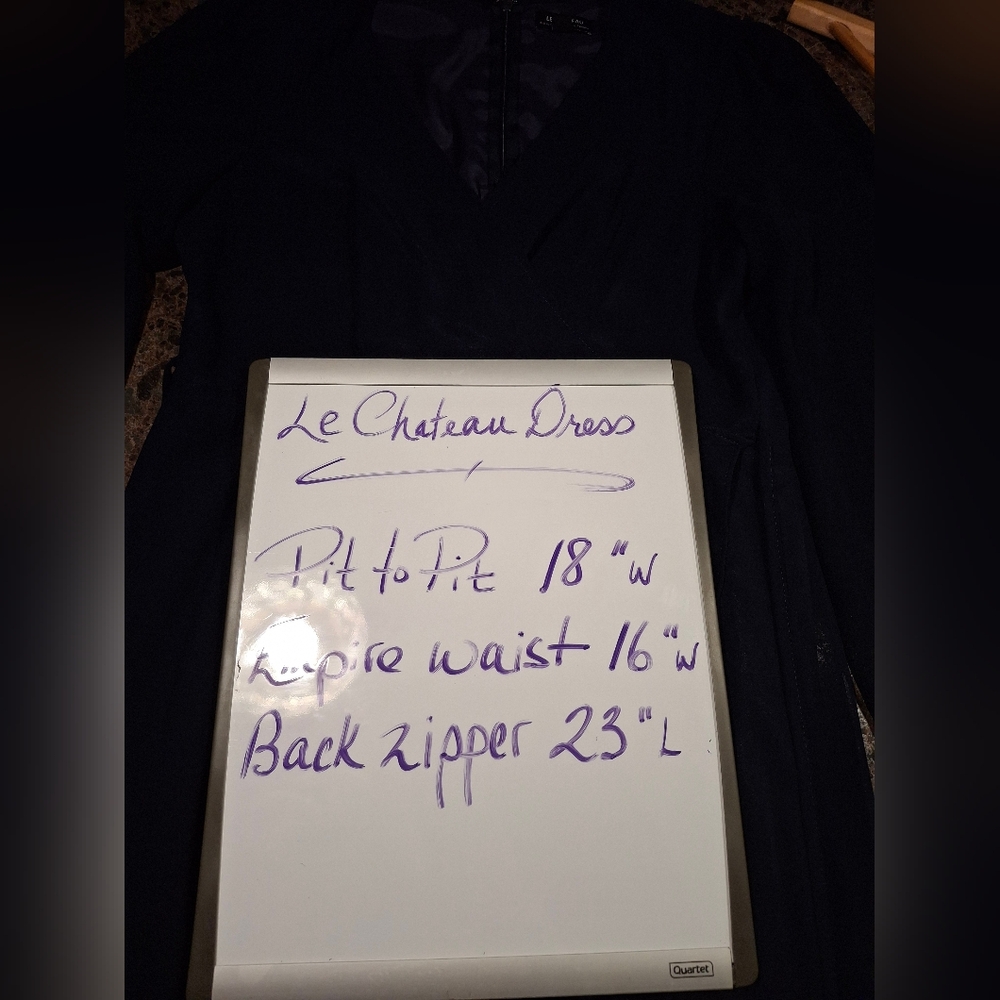 LE
Le Chateau Dress
Pit to Pit 18"W
Empire waist 16"W
Back zipper 23"L
Quartet